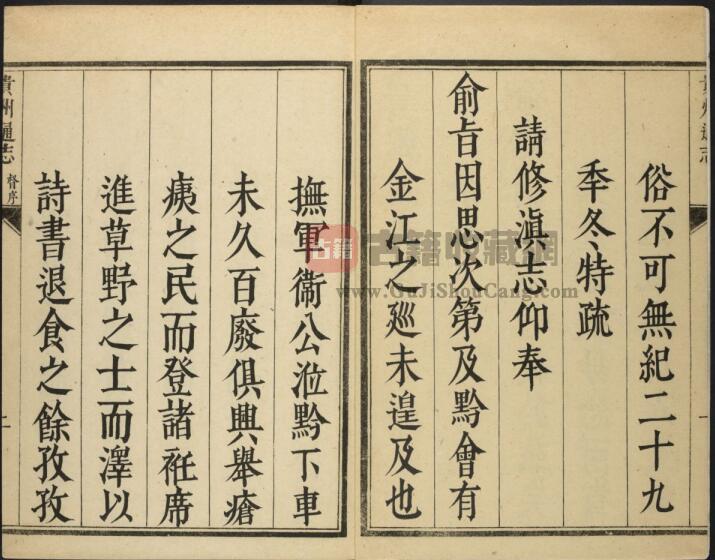 俗不可無紀二十九
秊冬特疏
請修滇志仰奉
俞旨因思次第及黔會有
金江之廵未遑及也
撫軍衞公涖黔下車
未久百廢俱興舉瘡
痍之民而登諸袵席
進草野之士而澤以
詩書退食之餘孜孜
貴州通志
督序
二
貴州通志
一
古籍
古籍收藏網
www.GuJiShouCang.com